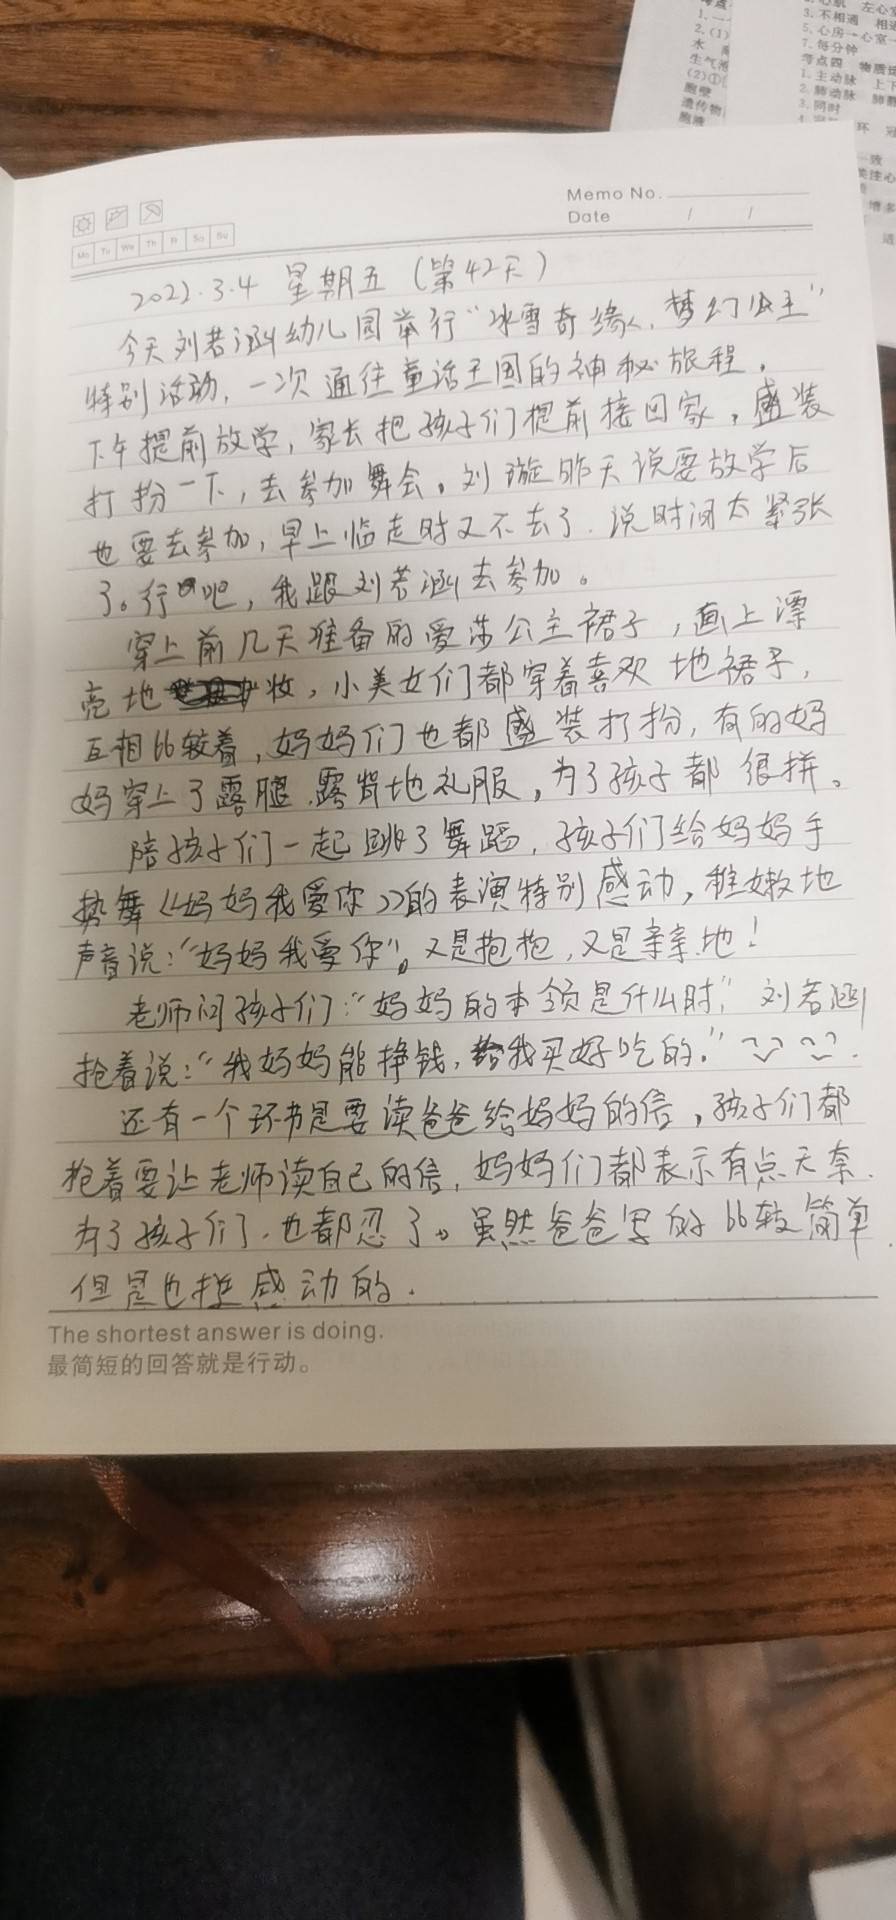 1.一
2.(1)
水
生气
(2)①
胞壁
遗传物
胞液
左心
3.不相通
5.心房→心室
7.每分钟
考点四 物质
1.主动脉 上
2.肺动脉 肺
3.同时
环 冠
一致
增多
Memo No.
Date / /
Mo Tu We Th Fr Sa Su
2022.3.4 星期五（第42天）
今天刘若涵幼儿园举行“冰雪奇缘、梦幻公主”
特别活动，一次通往童话王国的神秘旅程，
下午提前放学，家长把孩子们提前接回家，盛装
打扮一下，去参加舞会。刘璇昨天说要放学后
也要去参加，早上临走时又不去了．说时间太紧张
了。行吧，我跟刘若涵去参加。
穿上前几天准备的爱莎公主裙子，画上漂
亮地妆，小美女们都穿着喜欢地裙子，
互相比较着，妈妈们也都盛装打扮，有的妈
妈穿上了露腿、露背地礼服，为了孩子都很拼。
陪孩子们一起跳了舞蹈，孩子们给妈妈手
势舞《妈妈我爱你》的表演特别感动，稚嫩地
声音说：“妈妈我爱你”。又是抱抱，又是亲亲地！
老师问孩子们：“妈妈的本领是什么时，”刘若涵
抢着说：“我妈妈能挣钱，给我买好吃的。”
还有一个环节是要读爸爸给妈妈的信，孩子们都
抢着要让老师读自己的信，妈妈们都表示有点无奈．
为了孩子们，也都忍了。虽然爸爸写的比较简单，
但是也挺感动的．
The shortest answer is doing.
最简短的回答就是行动。